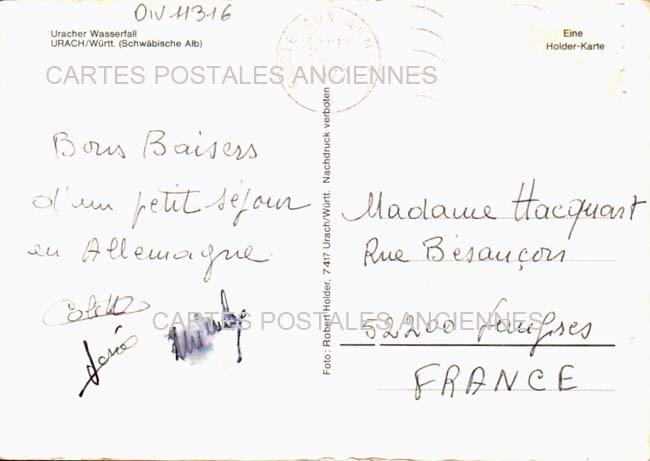 OIV 11316
Uracher Wasserfall
URACH/Württ. (Schwäbische Alb)
Eine
Holder-Karte
CARTES POSTALES ANCIENNES
Bons Baisers
d'un petit séjour
en Allemagne.
Colette
Foto: Robert Holder, 7417 Urach/Württ. Nachdruck verboten
Madame Hacquart
Rue Besançon
52200 Langres
FRANCE
CARTES POSTALES ANCIENNES